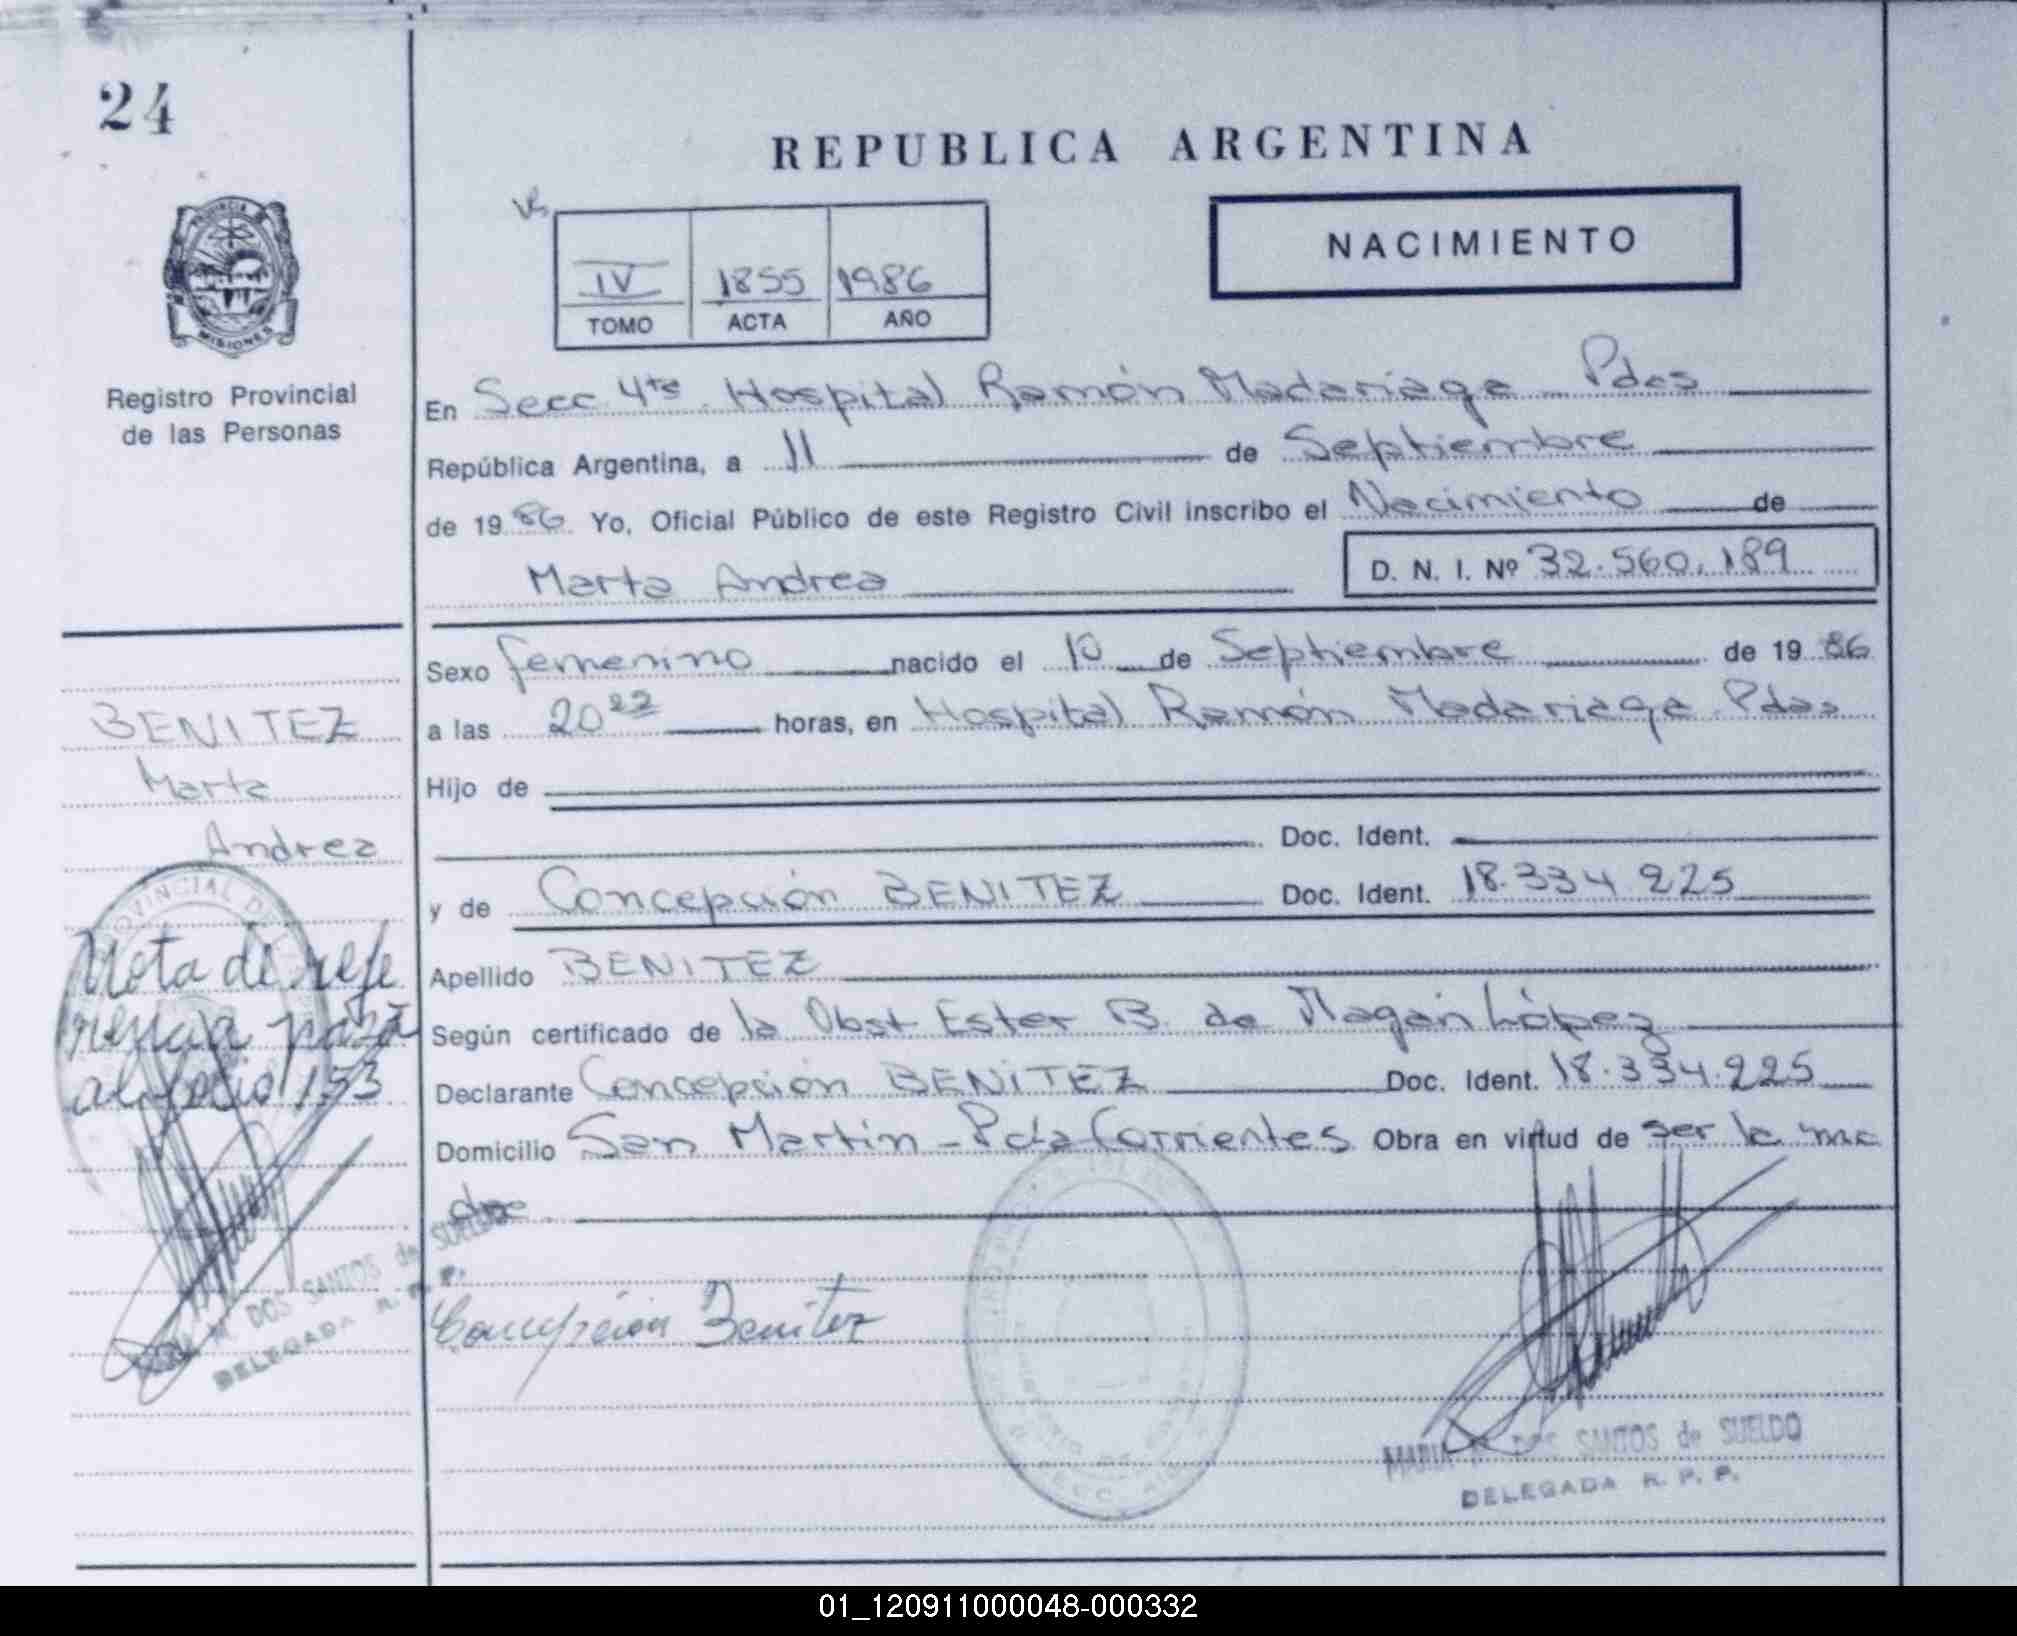 24
REPUBLICA ARGENTINA
PROVINCIA D
MISIONES
Registro Provincial
de las Personas
NACIMIENTO
IV 1855 1986
TOMO ACTA AÑO
En Secc 4ta Hospital Ramón Madariaga Pdas
República Argentina, a 11 de Septiembre
de 1986 Yo, Oficial Público de este Registro Civil inscribo el Nacimiento de
Marta Andrea D. N. I. Nº 32.560.189
Sexo femenino nacido el 10 de Septiembre de 1986
a las 20 22 horas, en Hospital Ramón Madariaga Pdas
Hijo de
Doc. Ident.
y de Concepción BENITEZ Doc. Ident. 18.334.225
Apellido BENITEZ
Según certificado de la Obst Ester B. de Magan López
Declarante Concepción BENITEZ Doc. Ident. 18.334.225
Domicilio San Martín - Pcia Corrientes Obra en virtud de ser la ma
dre
BENITEZ
Marta
Andrea
Nota de refe
rencia pasa
al folio 153
M. DOS SANTOS de SUELDO
DELEGADA R. P. P.
Concepción Benitez
MARIA DOS SANTOS de SUELDO
DELEGADA R. P. P.
01_120911000048-000332